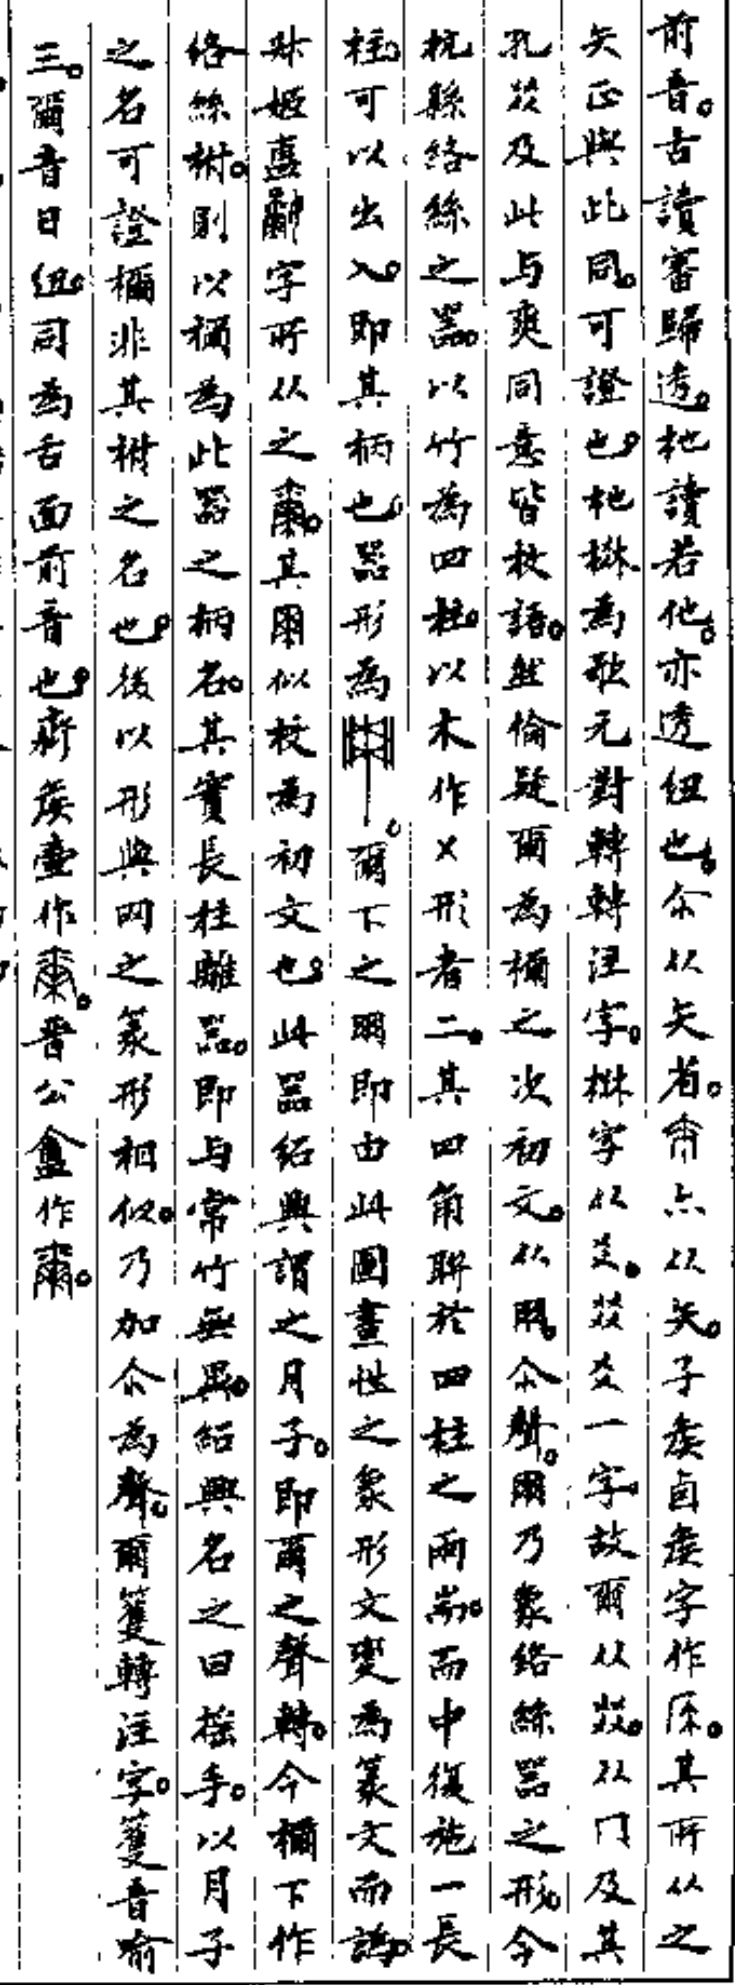 前音。古讀審歸透。杝讀若他。亦透紐也。尒从矢省。㡀亦从矢。子矦卣矦字作𥎦。其所从之
矢正與此同。可證也。杝檖為歌元對轉轉注字。棥字从爻。㸚爻一字。故爾从㸚。从冂及其
孔㸚及此与爽同意皆校語。然倫疑爾為檷之次初文。从𠕲。尒聲。𠕲乃象絡絲器之形。今
杭縣絡絲之器。以竹為四柱。以木作乂形者二。其四角聯於四柱之兩耑。而中復施一長
柱。可以出入。即其柄也。器形為。爾下之𠕲即由此圖畫性之象形文變為篆文而譌。
𣪕姬壺字所从之。其𠕲似校為初文也。此器紹興謂之月子。即爾之聲轉。今檷下作
絡絲柎。則以檷為此器之柄名。其實長柱離器。即与常竹無異。紹興名之曰搖手。以月子
之名可證檷非其柎之名也。後以形與网之篆形相似。乃加尒為聲。爾籰轉注字。籰音喻
三。爾音日紐。同為舌面前音也。齊矦壺作。晉公𥂴作。